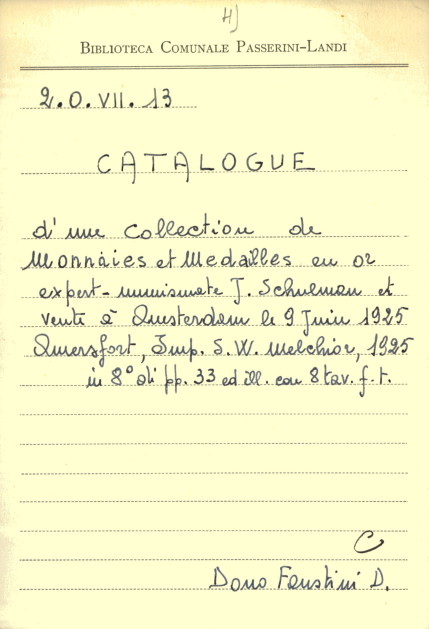 4)
BIBLIOTECA COMUNALE PASSERINI-LANDI
2.O.VII.13
CATALOGUE
d'une collection de
Monnaies et Medailles en or
expert-numismate J. Schulman et
vente à Amsterdam le 9 Juin 1925
Amersfort, Imp. S. W. Melchior, 1925
in 8° di pp. 33 ed ill. con 8 tav. f.t.
C
Dono Faustini D.